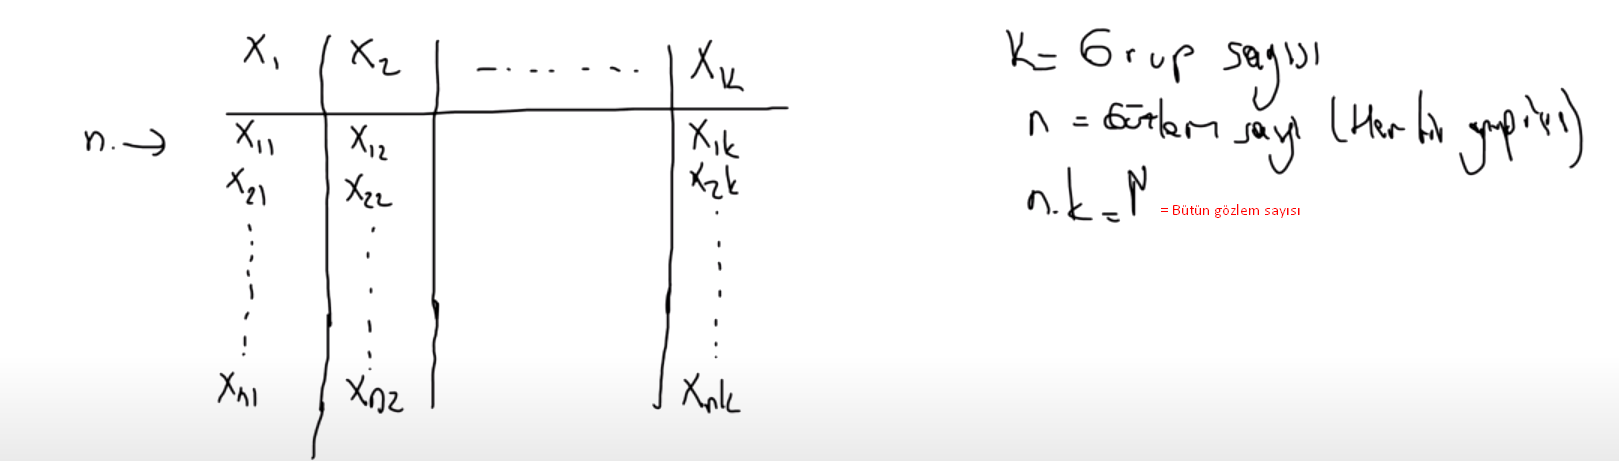 X₁ X₂ -....... Xk
n. → X₁₁ X₁₂ X₁k
X₂₁ X₂₂ X₂k
Xn₁ Xn₂ Xnk
k = Grup sayısı
n = Gözlem sayı (Her bir grup için)
n.k = N = Bütün gözlem sayısı